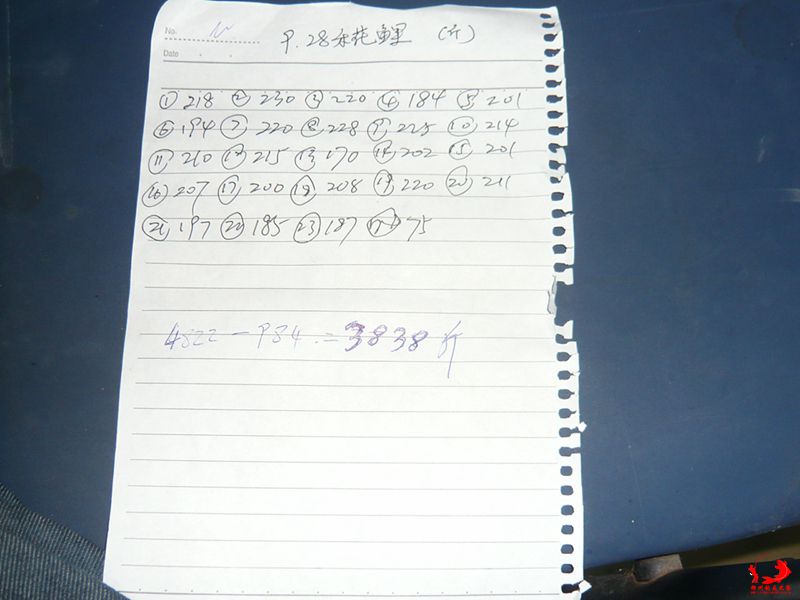 No. 
9.28禾花鲤 (斤)
Date
① 218 ② 230 ③ 220 ④ 184 ⑤ 201
⑥ 194 ⑦ 220 ⑧ 228 ⑨ 225 ⑩ 214
⑪ 210 ⑫ 215 ⑬ 170 ⑭ 202 ⑮ 201
⑯ 207 ⑰ 200 ⑱ 208 ⑲ 220 ⑳ 211
㉑ 197 ㉒ 185 ㉓ 187 ㉔ 75
4822-984=3838斤